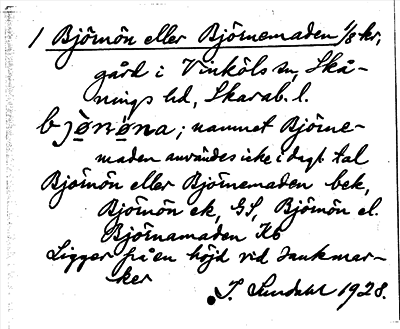 1 Björnön eller Björnemaden 1/8 kr,
gård i Vinköls sn, Skå-
nings hd, Skarab. l.
bjö̀nö̀na; namnet Björne-
maden användes icke i dagl. tal
Björnön eller Björnemaden bek,
Björnön ek, GS, Björnön el.
Björnamaden Kb
Ligger på en höjd vid sankmar-
ker
J. Sundahl 1928.